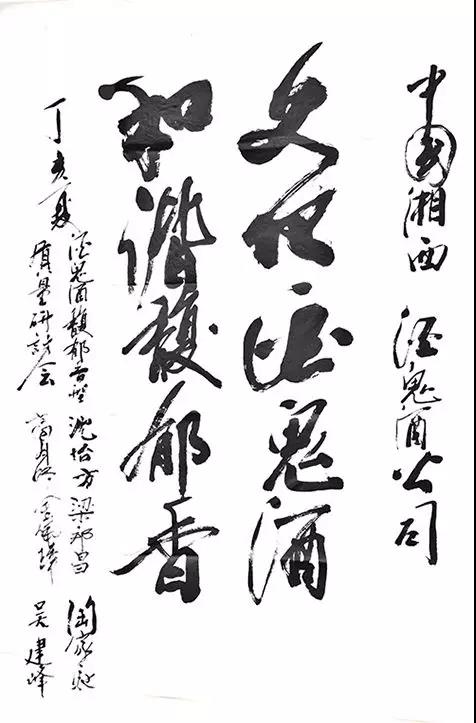 中国湘西 酒鬼酒公司
文化酒鬼酒
和谐馥郁香
丁亥夏
酒鬼酒馥郁香型 沈怡方 梁邦昌 陶家驰
质量研讨会 高月明 金佩璋 吴建峰